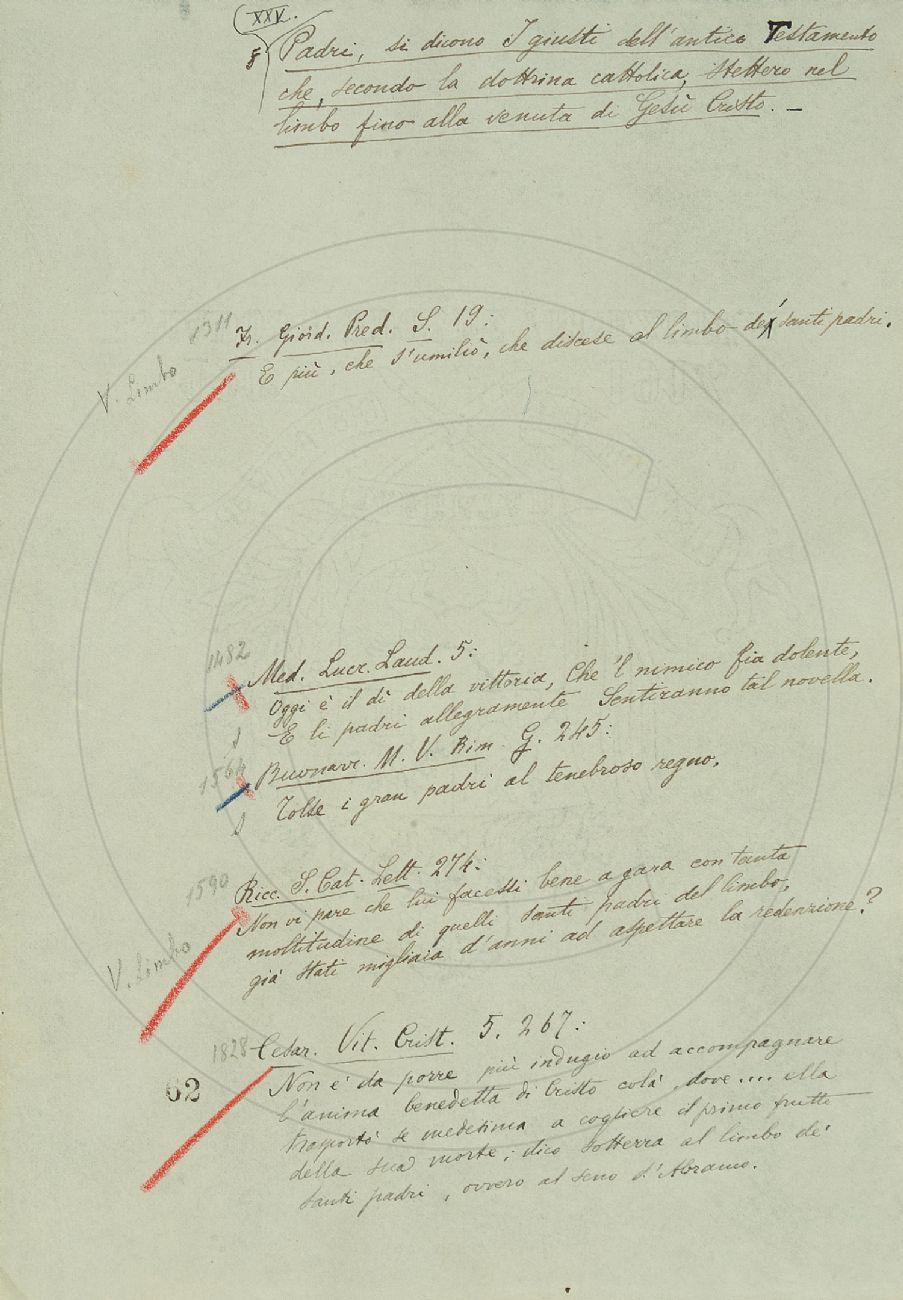 XXV.
§ Padri, si dicono I giusti dell'antico Testamento
che, secondo la dottrina cattolica, stettero nel
limbo fino alla venuta di Gesù Cristo. —
1311
Fr. Giord. Pred. S. 19:
E più, che s'umiliò, che discese al limbo de' santi padri.
V. Limbo
1482
Med. Lucr. Laud. 5:
Oggi è il dì della vittoria, Che 'l nimico fia dolente,
E li padri allegramente Sentiranno tal novella.
1564
Buonarr. M. V. Rim. G. 245:
Tolse i gran padri al tenebroso regno.
1590
Ricc. S. Cat. Lett. 274:
Non vi pare che lui facessi bene a gara con tanta
moltitudine di quelli santi padri del limbo,
già stati migliaia d'anni ad aspettare la redenzione?
V. Limbo
1828
Cesar. Vit. Crist. 5. 267:
Non è da porre più indugio ad accompagnare
l'anima benedetta di Cristo colà, dove.... ella
trasportò se medesima a cogliere il primo frutto
della sua morte; dico sotterra al limbo de'
santi padri, ovvero al seno d'Abramo.
62